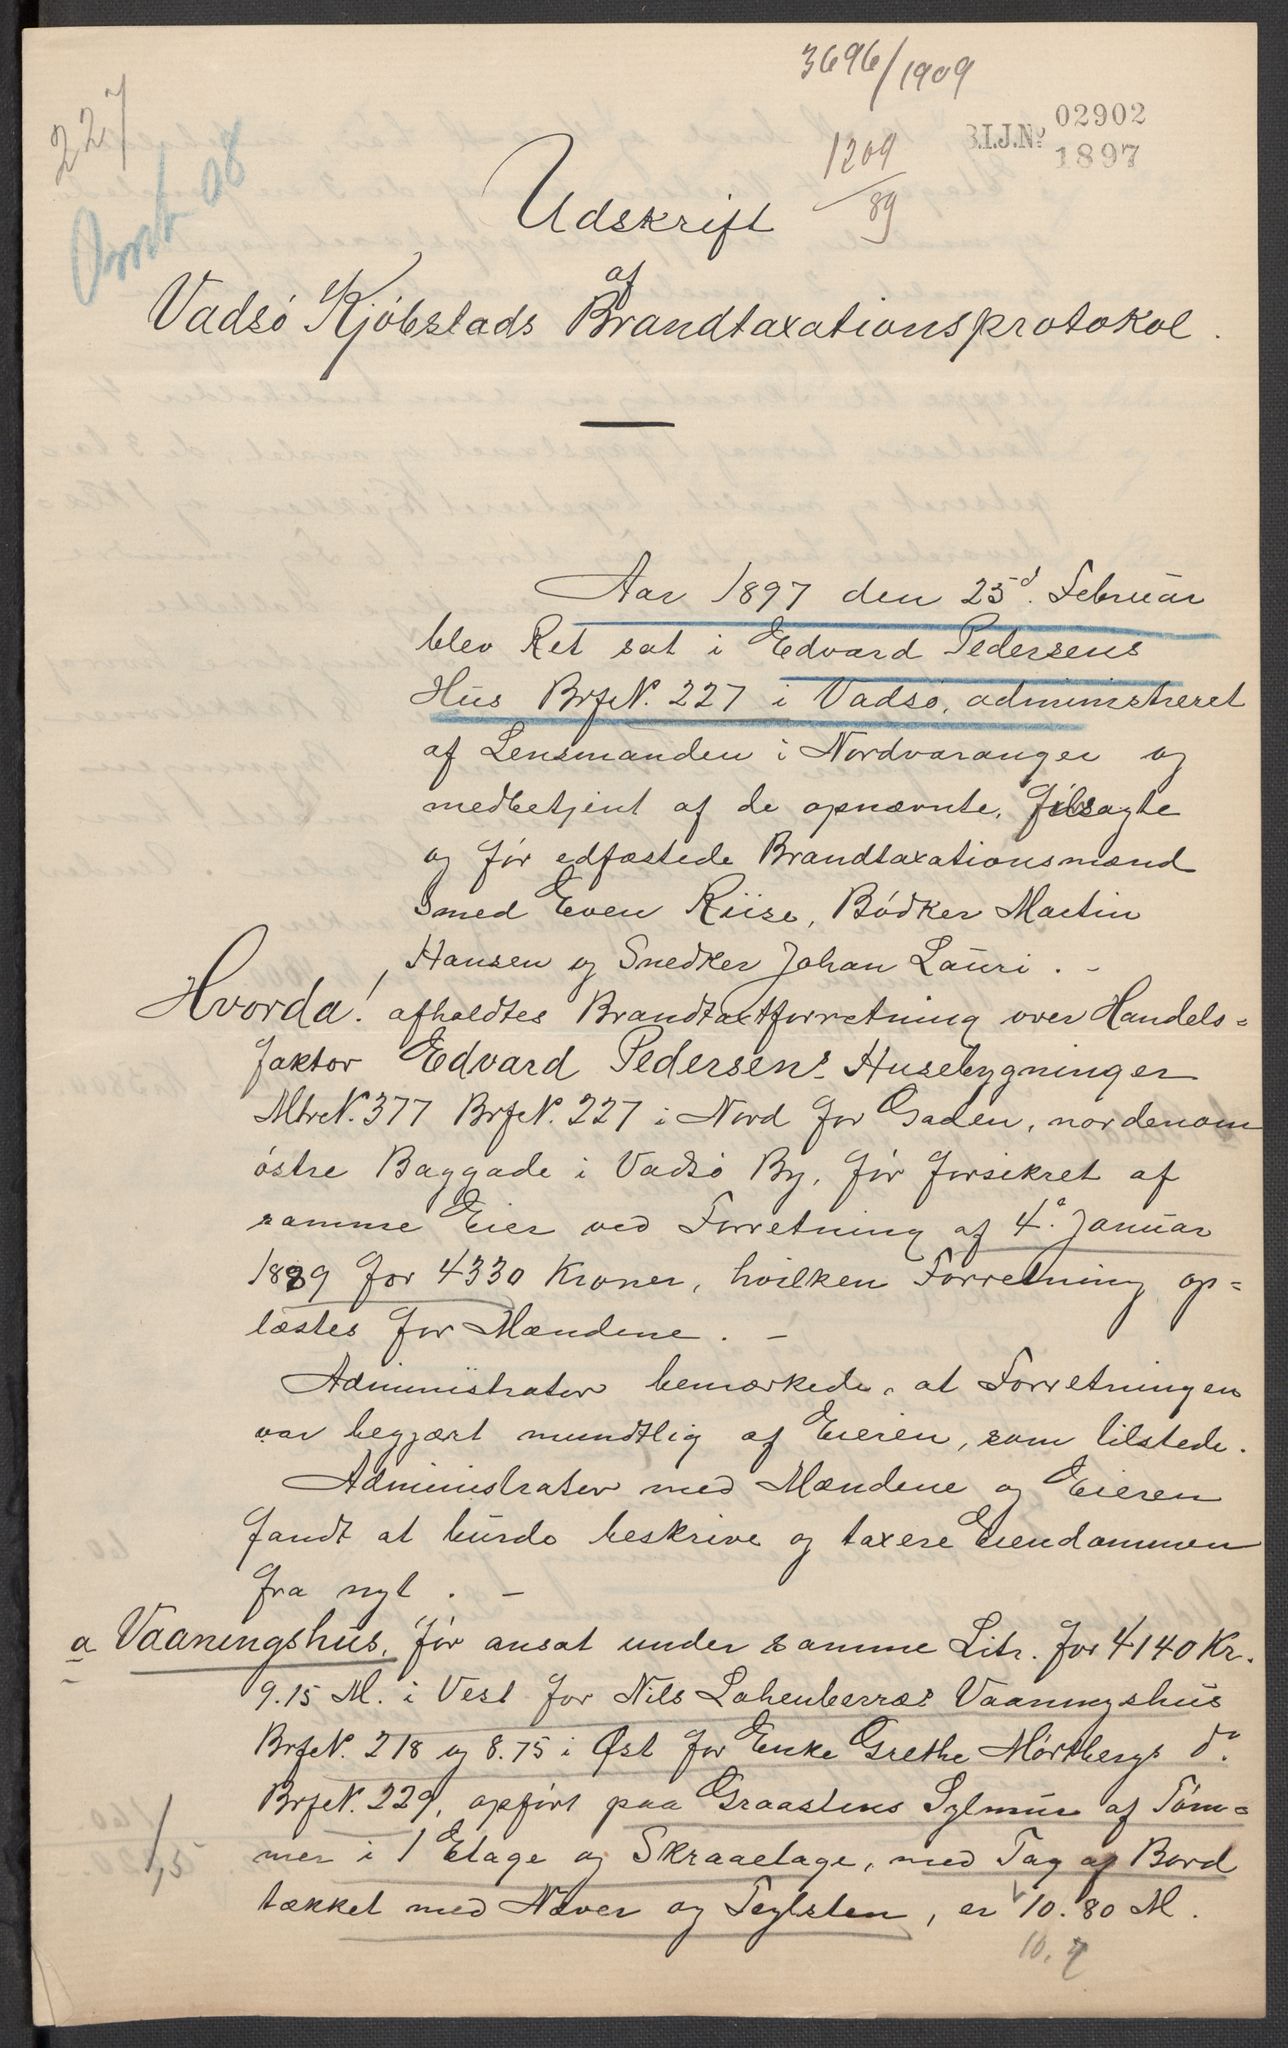 3696/1909
227
B.I.J.No 02902
1897
1209
/89
Omb 98
Udskrift
af
Vadsö Kjöbstads Brandtaxationsprotokol.
Aar 1897 den 25d. Februar
blev Ret sat i Edvard Pedersens
Hus BrfeN. 227 i Vadsö, administreret
af Lensmanden i Nordvaranger og
medbetjent af de opnævnte, tilsagte
og för edfæstede Brandtaxationsmænd
Smed Even Riise, Bödker Martin
Hansen og Snedker Johan Lauri. -
Hvorda! afholdtes Brandtaxtforretning over Handels=
faktor Edvard Pedersens Husebygninger
MtreN. 377 BrfeN. 227 i Nord for Gaden, nordenom
östre Baggade i Vadsö By, för forsikret af
samme Eier ved Forretning af 4de. Januar
1889 for 4330 Kroner, hvilken Forretning op=
læstes for Mændene. -
Administrator bemærkede, at Forretningen
var begjært mundtlig af Eieren, som tilstede.
Administrator med Mændene og Eieren
fandt at burde beskrive og taxere Eiendommen
fra nyt. -
a Vaaningshus, för ansat under samme Litr. for 4140 Kr.
9.15 M. i Vest for Nils Vaaningshus
BrfeN. 218 og 8.75 i Øst for Enke Grethe Mörtbergs do.
BrfeN. 229, opfört paa Graastens Sylmur af Töm=
mer i 1 Etage og Skraaetage, med Tag af Bord
1,5
tækket med Næver og Teglsten, er 10.80 M.
10.7